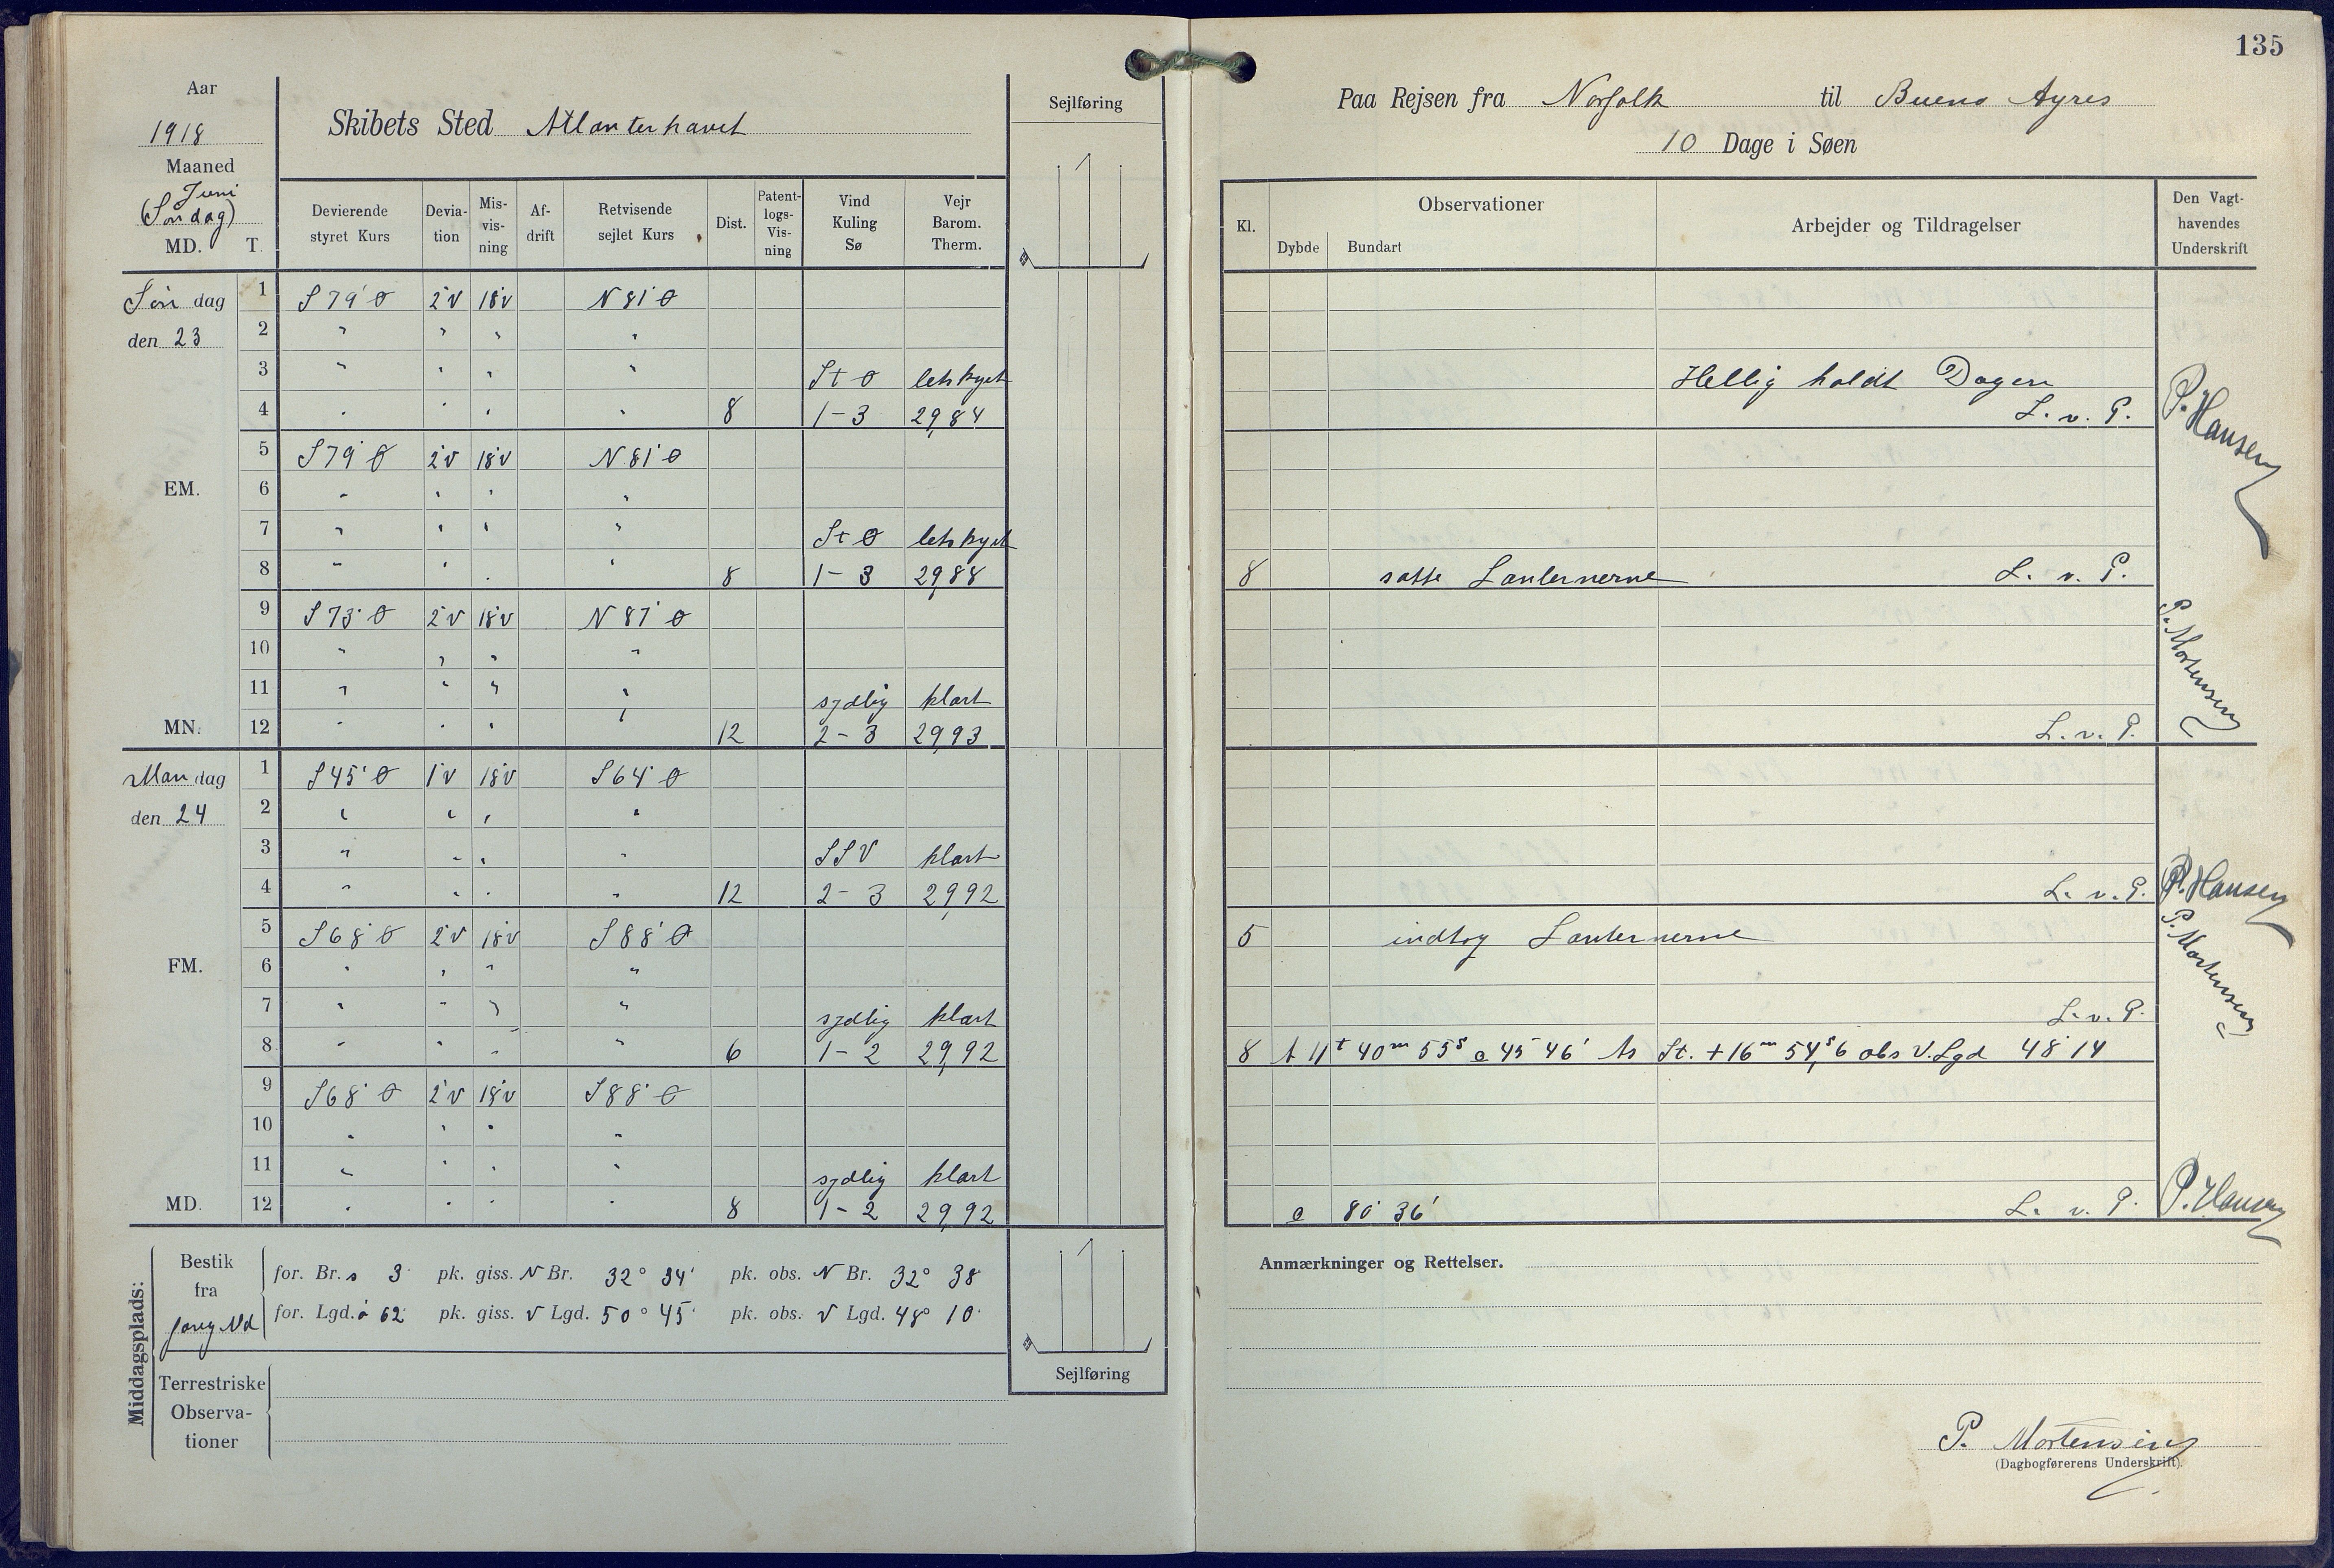 135
Aar
1918
Maaned
Juni
(Søndag)
MD. T.
Skibets Sted Atlanterhavet
Sejlføring
Paa Rejsen fra Norfolk til Bueno Ayres
10 Dage i Søen
Devierende styret Kurs | Devia-tion | Mis-vis-ning | Af-drift | Retvisende sejlet Kurs | Dist. | Patent-logs-Vis-ning | Vind Kuling Sø | Vejr Barom. Therm.
Kl. | Observationer | Dybde | Bundart | Arbejder og Tildragelser | Den Vagt-havendes Underskrift
Søn dag 1 S 79° Ø 2°V 18°V N 81° Ø
den 23 2 " " " "
3 " " " " St Ø letskyet Hellig holdt Dagen
4 " " " " 8 1-3 29,84 L. v. P. P. Hansen
5 S 79° Ø 2°V 18°V N 81° Ø
EM. 6 " " " "
7 " " " " St Ø letskyet
8 " " " " 8 1-3 29,88 8 satte Lanternerne L. v. P.
9 S 73° Ø 2°V 18°V N 87° Ø
10 " " " " P. Mortensen
11 " " " " sydlig klart
MN. 12 " " " " 12 2-3 29,93 L. v. P.
Man dag 1 S 45° Ø 1°V 18°V S 64° Ø
den 24 2 " " " "
3 " " " " SSV klart
4 " " " " 12 2-3 29,92 L. v. P. P. Hansen
5 S 68° Ø 2°V 18°V S 88° Ø 5 indtog Lanternerne
FM. 6 " " " " P. Mortensen
7 " " " " sydlig klart L. v. P.
8 " " " " 6 1-2 29,92 8 11t 40m 55s 45° 46' St. + 16m 54,s6 obs V. Lgd 48° 14
9 S 68° Ø 2°V 18°V S 88° Ø
10 " " " "
11 " " " " sydlig klart
MD. 12 " " " " 8 1-2 29,92 80° 36' L. v. P. P. Hansen
Middagsplads:
Bestik fra forrig Md
for. Br. s 3' pk. giss. N Br. 32° 34' pk. obs. N Br. 32° 38'
for. Lgd. ø 62' pk. giss. V Lgd. 50° 45' pk. obs. V Lgd. 48° 10'
Terrestriske Observa-tioner
Sejlføring
Anmærkninger og Rettelser.
P. Mortensen
(Dagbogførerens Underskrift).